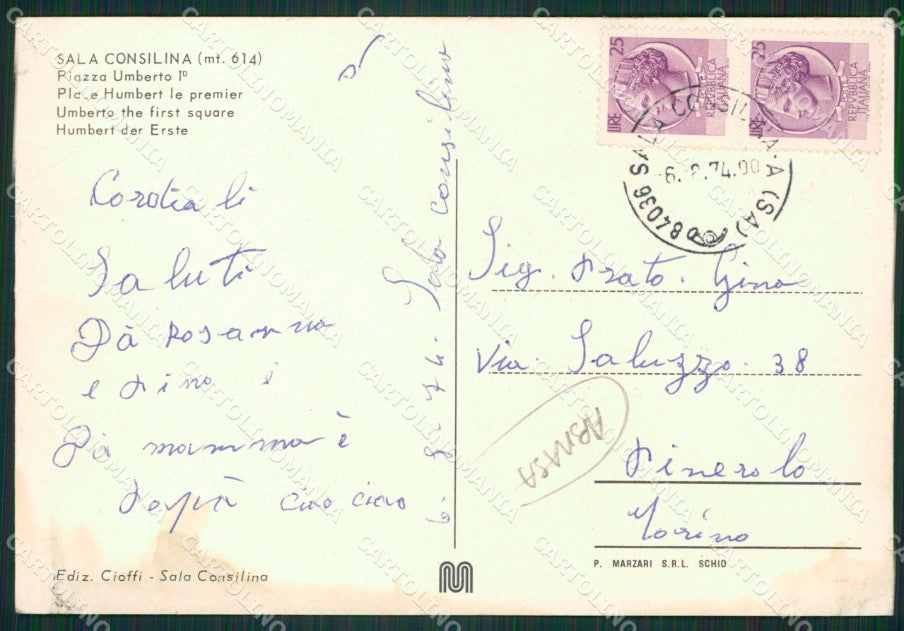 SALA CONSILINA (mt. 614)
Piazza Umberto I°
Place Humbert le premier
Umberto the first square
Humbert der Erste
Cordiali
Saluti
Dà Rosanna
e Pino e
Dà mamma è
Papà ciao ciao
6 - 8 - 74. Sala Consilina
25
LIRE
REPVBBLICA
ITALIANA
25
LIRE
REPVBBLICA
ITALIANA
84036 SALA CONSILINA - A (SA)
6. 8.74.00
Sig. Prato. Gino
Via. Saluzzo. 38
Pinerolo
Torino
P. MARZARI S.R.L. SCHIO
Ediz. Cioffi - Sala Consilina
CARTOLINOMANIA